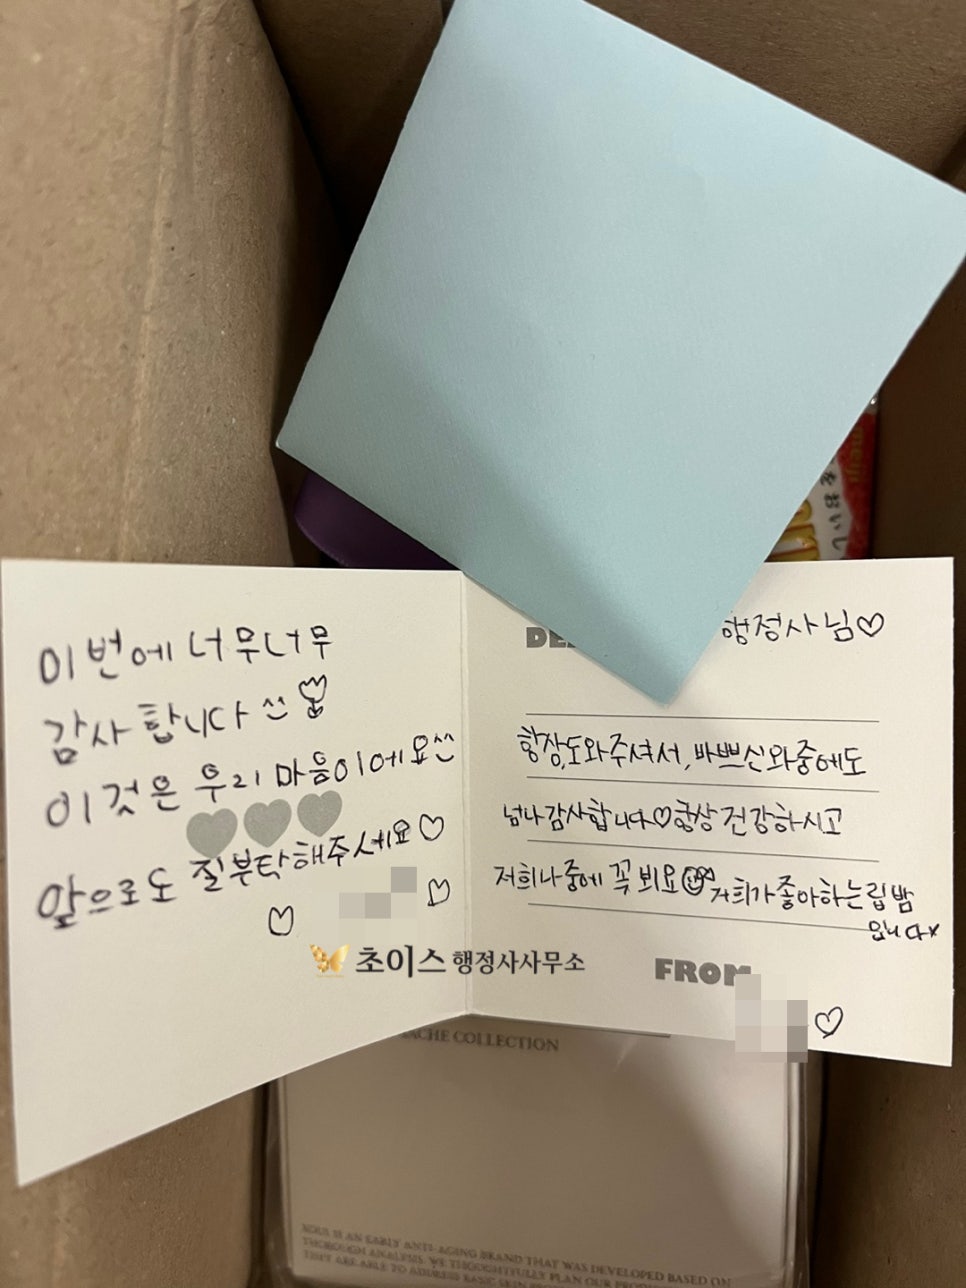 이번에 너무너무
감사합니다
이것은 우리 마음이에요
앞으로도 잘부탁해주세요
행정사님
항장도와주셔서, 바쁘신와중에도
넘나감사합니다 항상 건강하시고
저희나중에 꼭 뵈요 저희가좋아하는립밤
입니다
FROM
초이스 행정사사무소
meiji
をおいし
ACHE COLLECTION
IS AN EARLY ANTI-AGING BRAND THAT WAS DEVELOPED BASED ON
THOROUGH ANALYSIS. WE THOUGHTFULLY PLAN OUR
THEY ARE ABLE TO ADDRESS BASIC SKIN